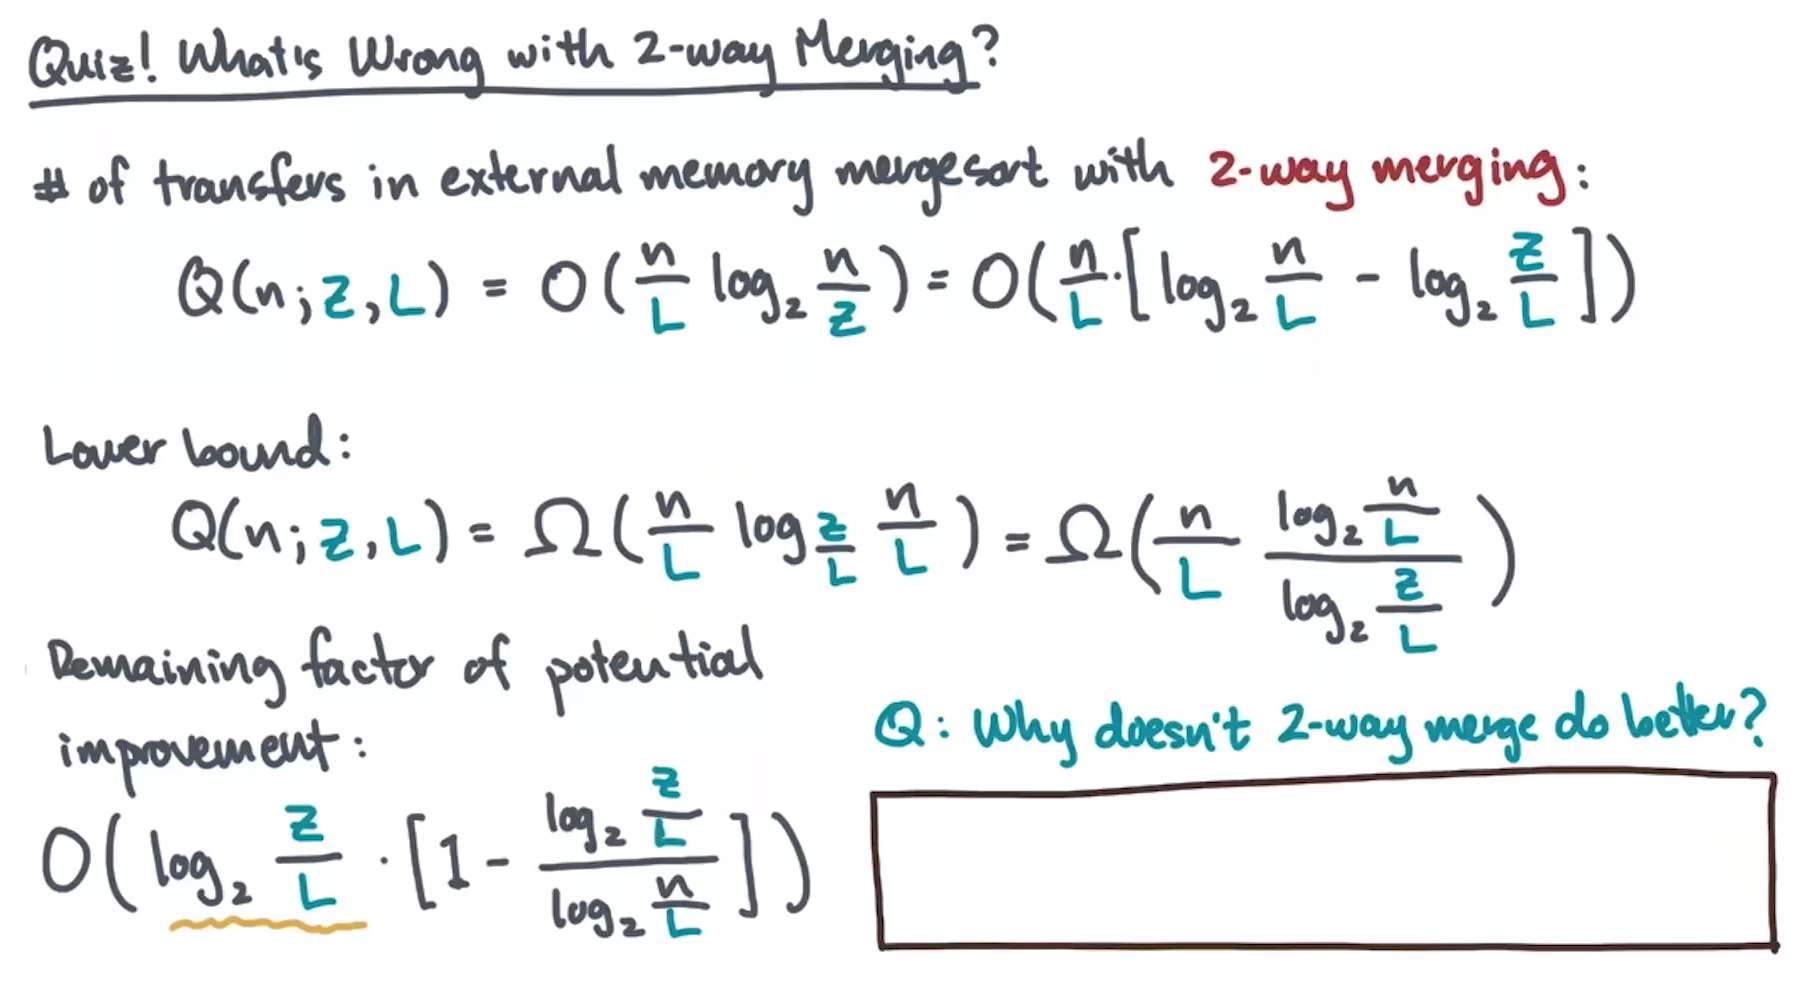 Quiz! What's Wrong with 2-way Merging?
# of transfers in external memory mergesort with 2-way merging:
Q(n; Z, L) = O(n/L log₂ n/Z) = O(n/L · [log₂ n/L - log₂ Z/L])
Lower bound:
Q(n; Z, L) = Ω(n/L log_{Z/L} n/L) = Ω(n/L (log₂ n/L)/(log₂ Z/L))
Remaining factor of potential
improvement:
O(log₂ Z/L · [1 - (log₂ Z/L)/(log₂ n/L)])
Q: Why doesn't 2-way merge do better?